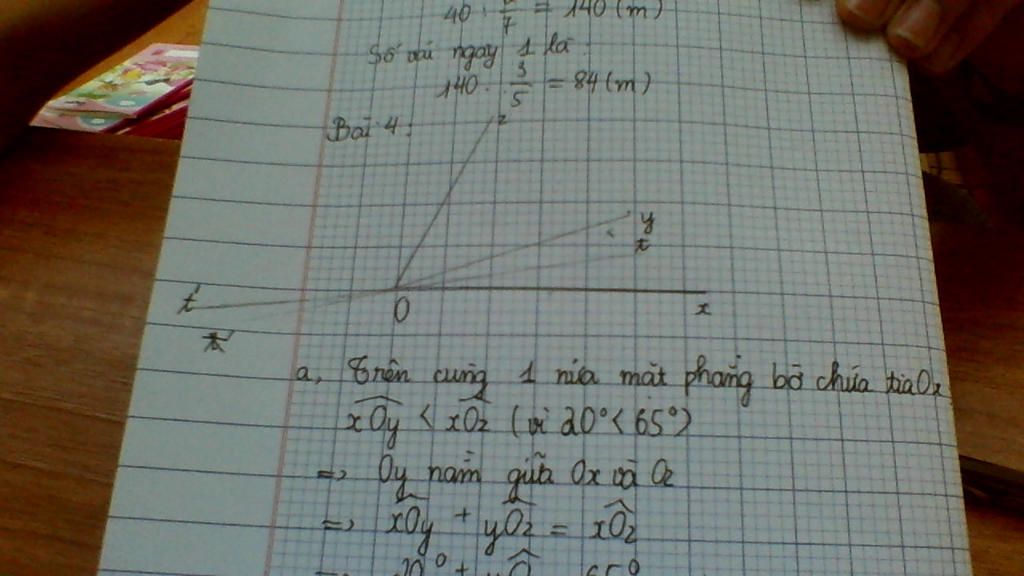 40 · 7 = 140 (m)
Số vải ngày 1 là
140 · 3/5 = 84 (m)
Bài 4:
z
y
t
t'
O
x
a, Trên cùng 1 nửa mặt phẳng bờ chứa tia Ox
xOy < xOz (vì 20° < 65°)
=> Oy nằm giữa Ox và Oz
=> xOy + yOz = xOz
=> 20° + yO 65°